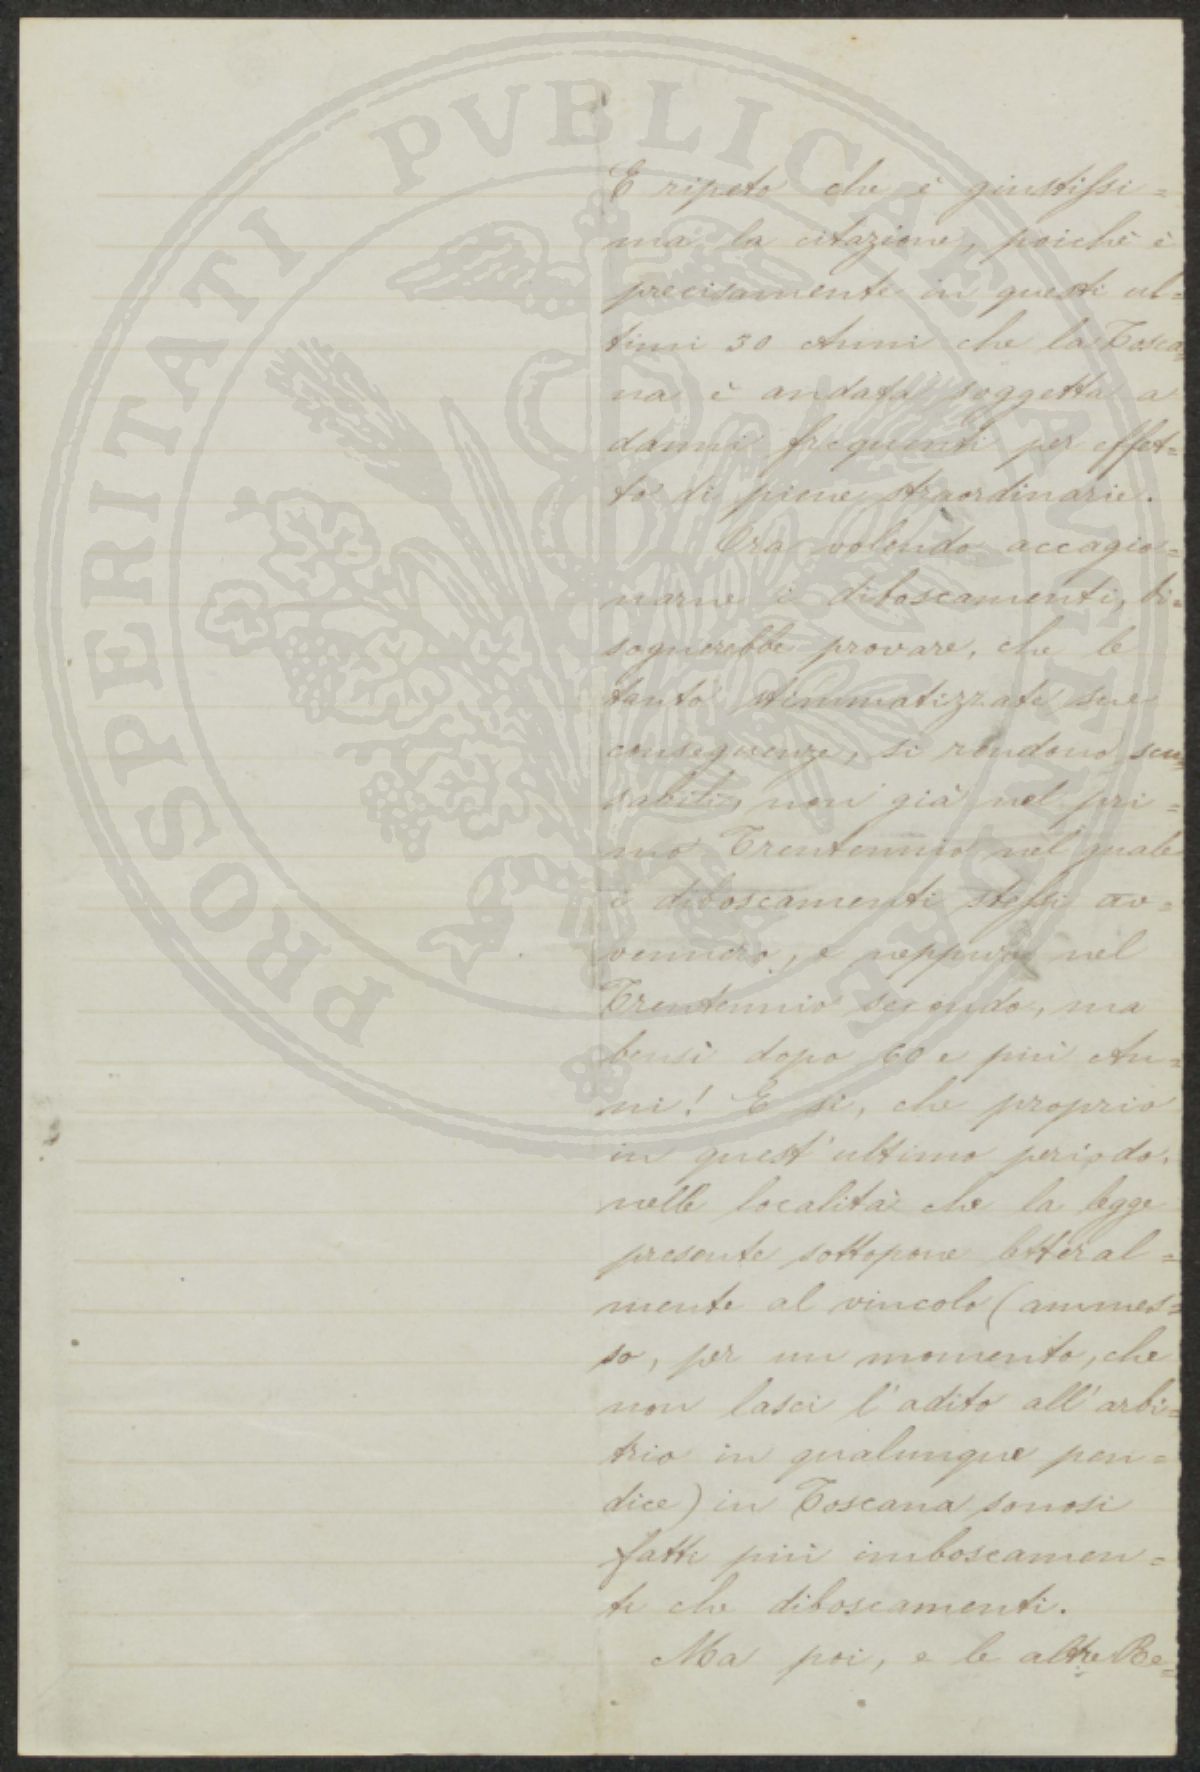 PROSPERITATI PVBLICAE AVGENDAE
E ripeto che è giustissi=
ma la citazione, poichè è
precisamente in questi ul=
timi 30 Anni che la Tosca=
na è andata soggetta a
danni frequenti per effet=
to di piene straordinarie.
Ora volendo accagio=
narne i diboscamenti, bi=
sognerebbe provare, che le
tanto stimmatizzate sue
conseguenze, si rendono sen=
sabili, non già nel pri=
mo Trentennio nel quale
i diboscamenti stessi av=
vennero, e neppure nel
Trentennio secondo, ma
bensì dopo 60 e più An=
ni! E sì, che proprio
in quest'ultimo periodo,
nelle località che la legge
presente sottopone letteral=
mente al vincolo (ammes=
so, per un momento, che
non lasci l'adito all'arbi=
trio in qualunque pen=
dice) in Toscana sonosi
fatti più imboscamen=
ti che diboscamenti.
Ma poi, e le altre Re=